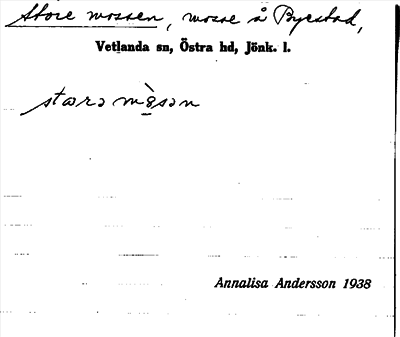 Store mossen, mosse å Byestad,
Vetlanda sn, Östra hd, Jönk. l.
stωrə mò̱sən
Annalisa Andersson 1938